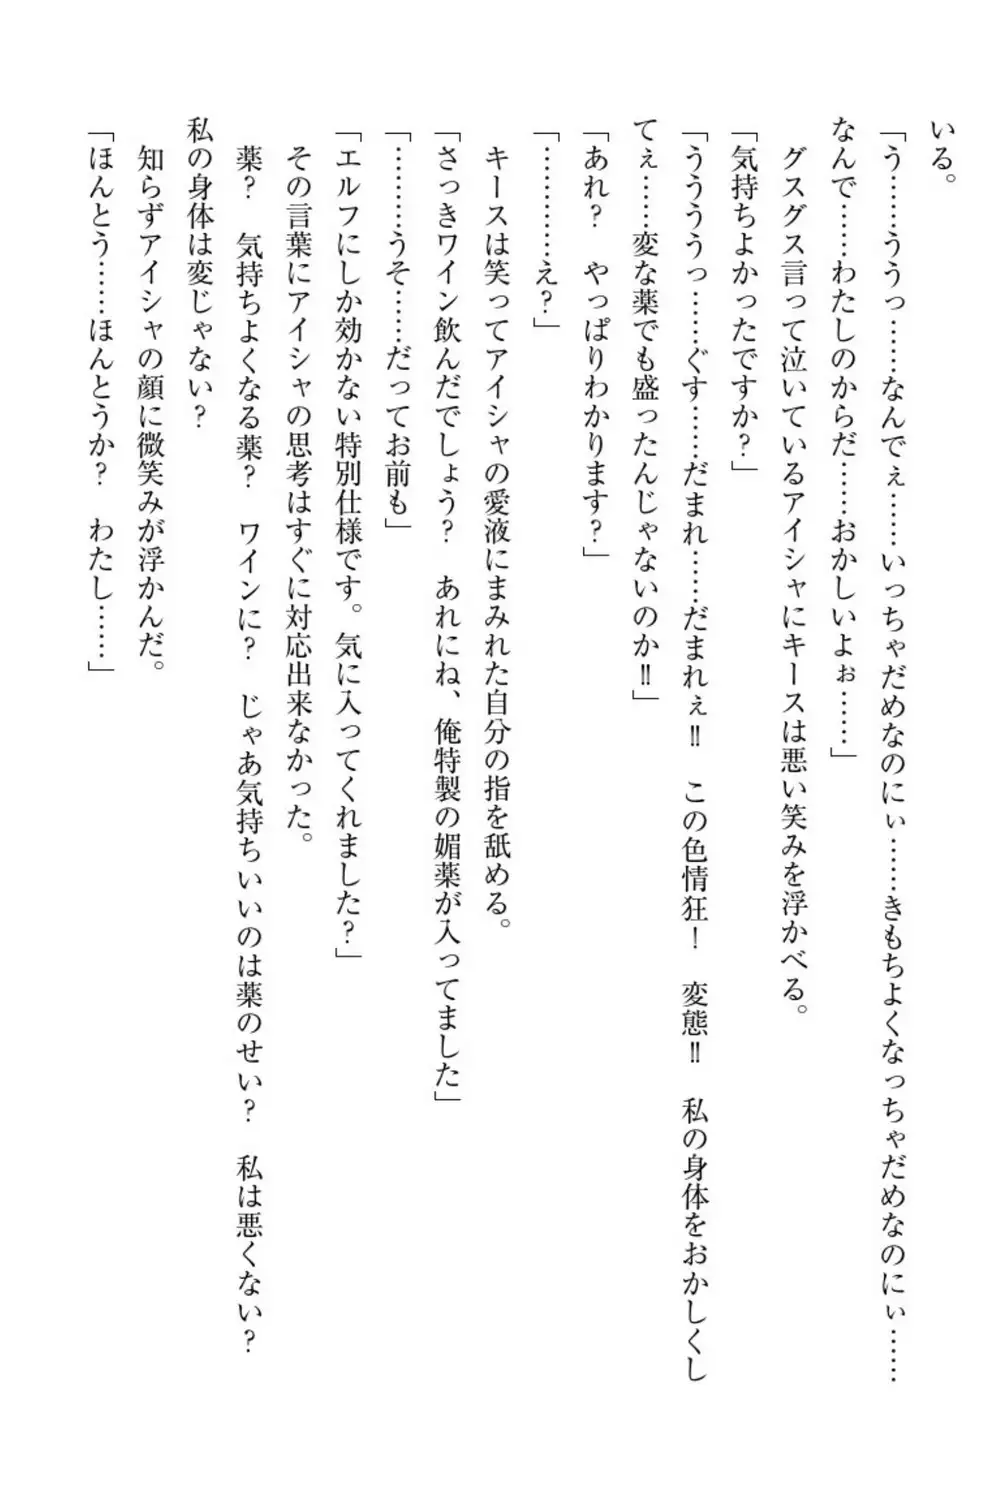 いる。
「う………ううっ………なんでぇ……いっちゃだめなのにぃ……きもちよくなっちゃだめなのにぃ……
なんで……わたしのからだ……おかしいよぉ……」
グスグス言って泣いているアイシャにキースは悪い笑みを浮かべる。
「気持ちよかったですか？」
「うううっ………ぐす……だまれ……だまれぇ‼　この色情狂！　変態‼　私の身体をおかしくし
てぇ……変な薬でも盛ったんじゃないのか‼」
「あれ？　やっぱりわかります？」
「…………え？」
キースは笑ってアイシャの愛液にまみれた自分の指を舐める。
「さっきワイン飲んだでしょう？　あれにね、俺特製の媚薬が入ってました」
「………うそ……だってお前も」
「エルフにしか効かない特別仕様です。気に入ってくれました？」
その言葉にアイシャの思考はすぐに対応出来なかった。
薬？　気持ちよくなる薬？　ワインに？　じゃあ気持ちいいのは薬のせい？　私は悪くない？
私の身体は変じゃない？
知らずアイシャの顔に微笑みが浮かんだ。
「ほんとう……ほんとうか？　わたし……」